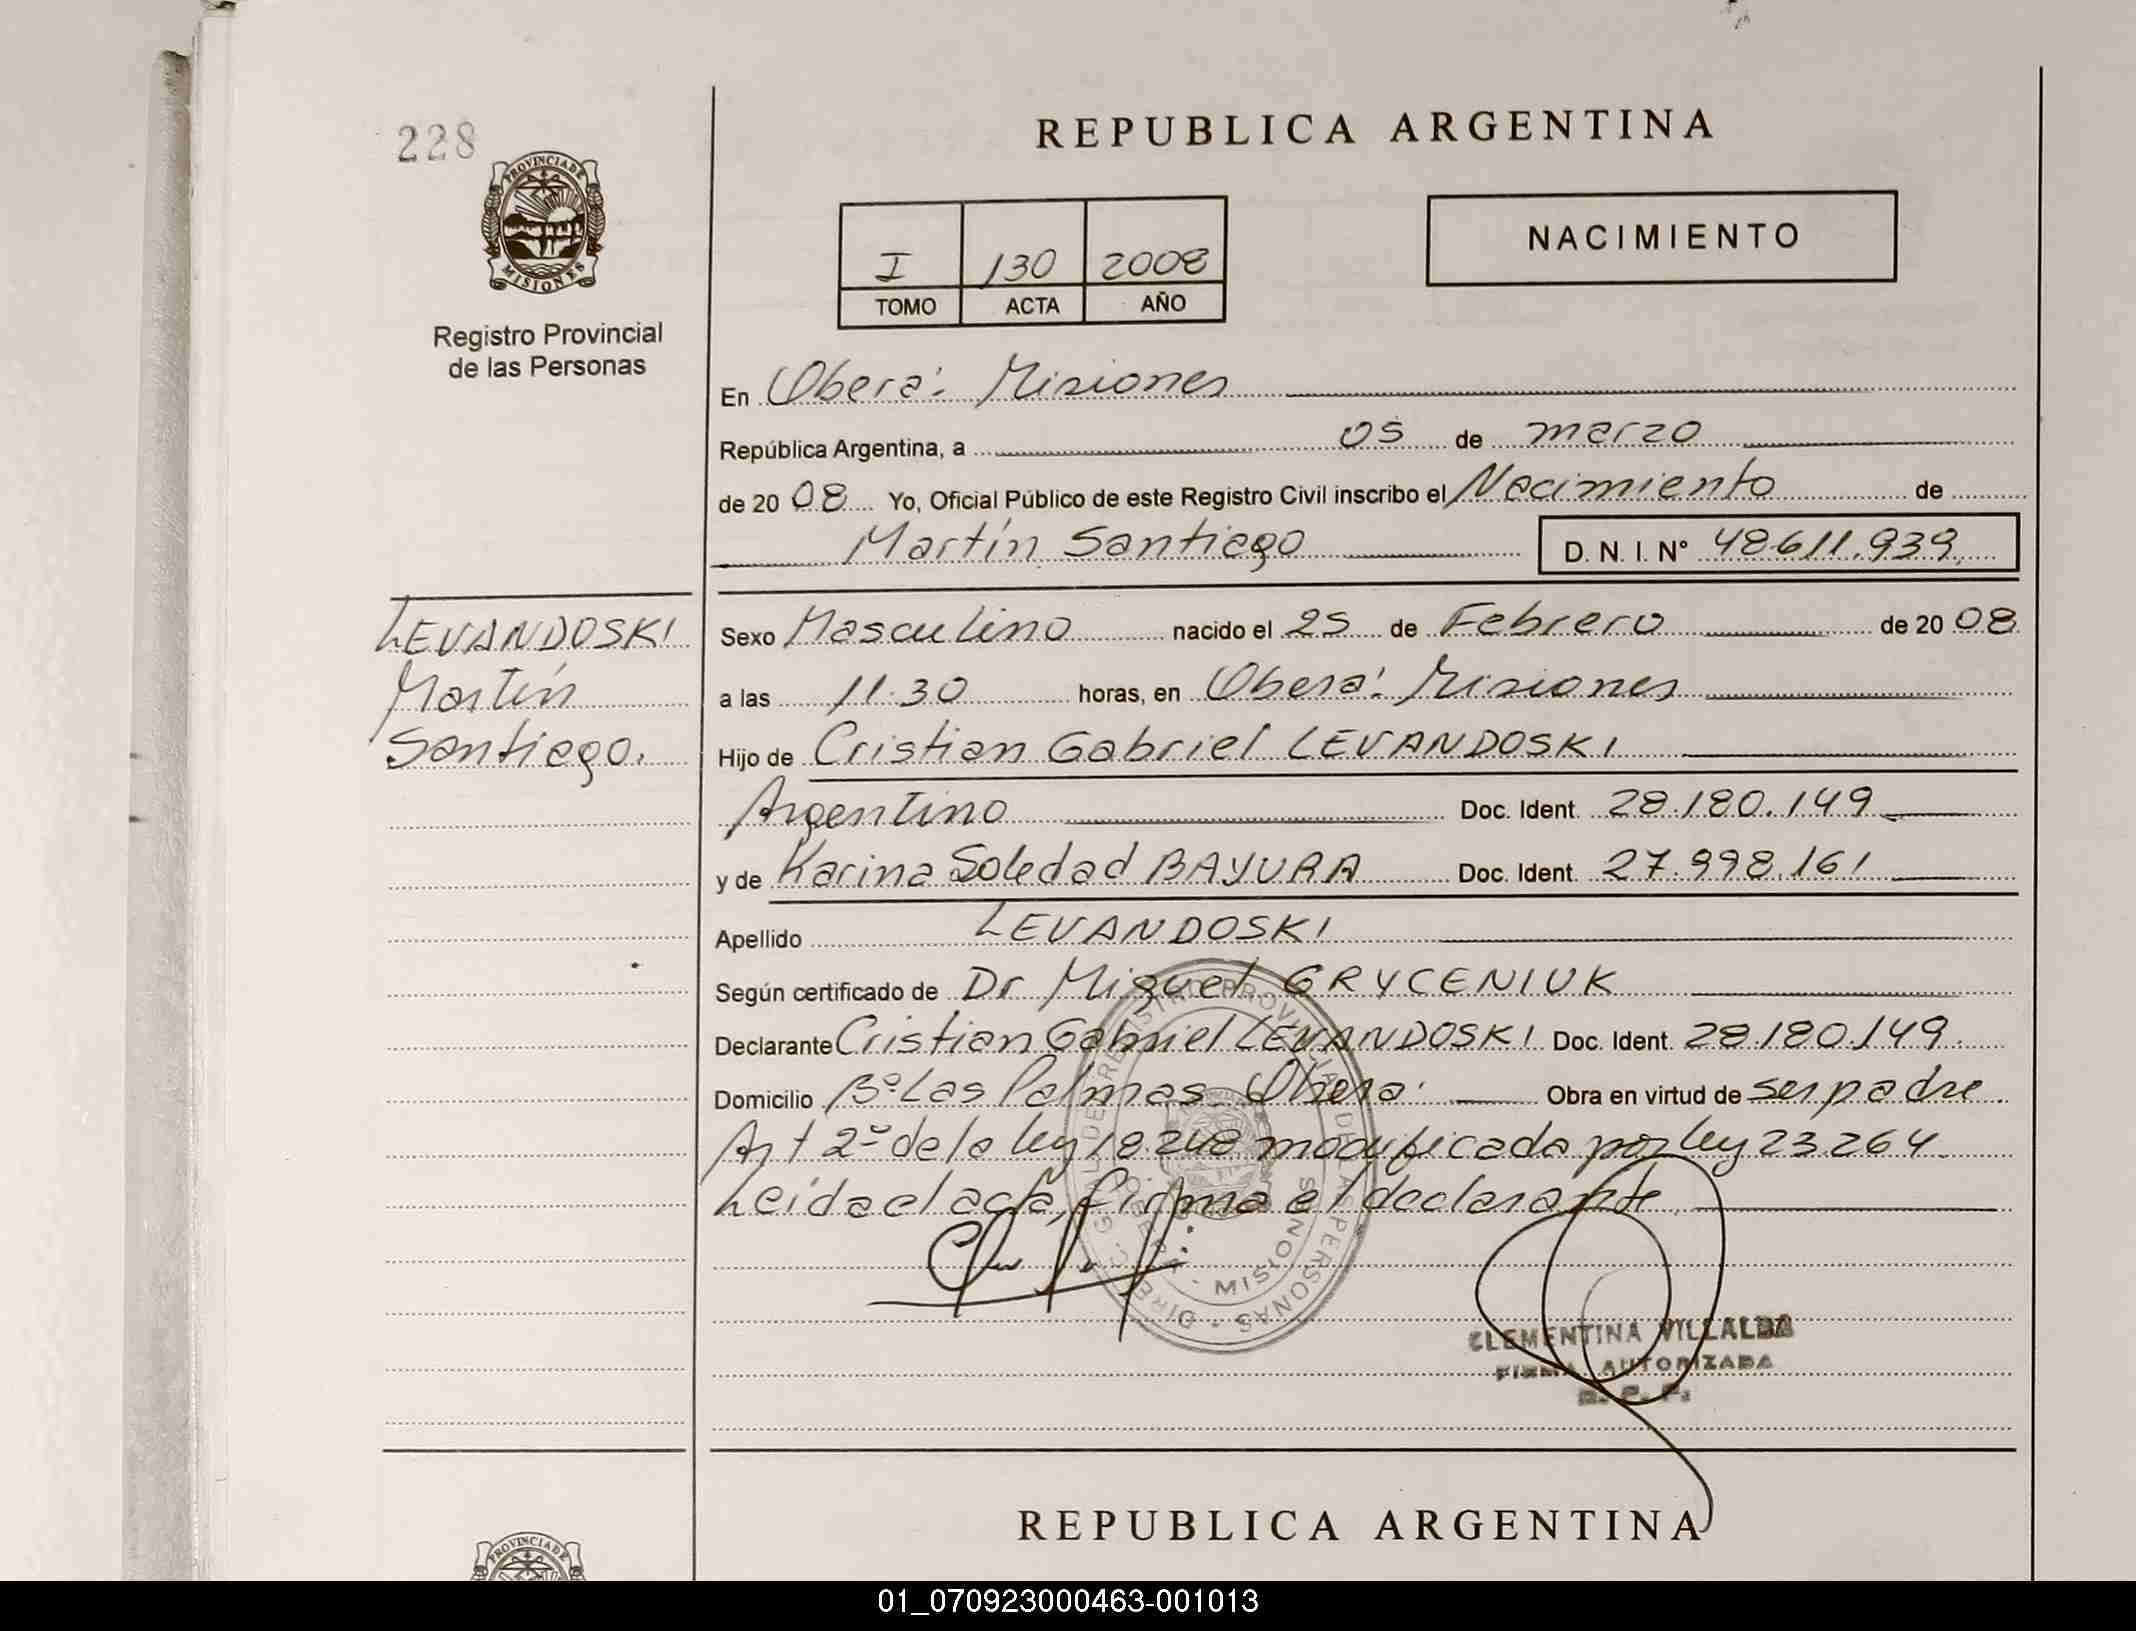 228
REPUBLICA ARGENTINA
PROVINCIA DE
MISIONES
Registro Provincial
de las Personas
I 130 2008
TOMO ACTA AÑO
NACIMIENTO
En Oberá: Misiones
República Argentina, a 05 de marzo
de 20 08 Yo, Oficial Público de este Registro Civil inscribo el Nacimiento de
Martín Santiago D. N. I. N° 48611.939
LEVANDOSKI
Martín
Santiago.
Sexo Masculino nacido el 25 de Febrero de 20 08
a las 11.30 horas, en Oberá: Misiones
Hijo de Cristian Gabriel LEVANDOSKI
Argentino Doc. Ident. 28.180.149
y de Karina Soledad BAYURA Doc. Ident. 27.998.161
Apellido LEVANDOSKI
Según certificado de Dr Miguel GRYCENIUK
Declarante Cristian Gabriel LEVANDOSKI Doc. Ident. 28.180.149.
Domicilio B° Las Palmas. Oberá Obra en virtud de ser padre.
Art 2° de la ley 18.248 modificada por ley 23.264
Leída el acta, firma el declarante
MISIONES
CLEMENTINA VILLALBA
FIRMA AUTORIZADA
REPUBLICA ARGENTINA
PROVINCIA DE
01_070923000463-001013